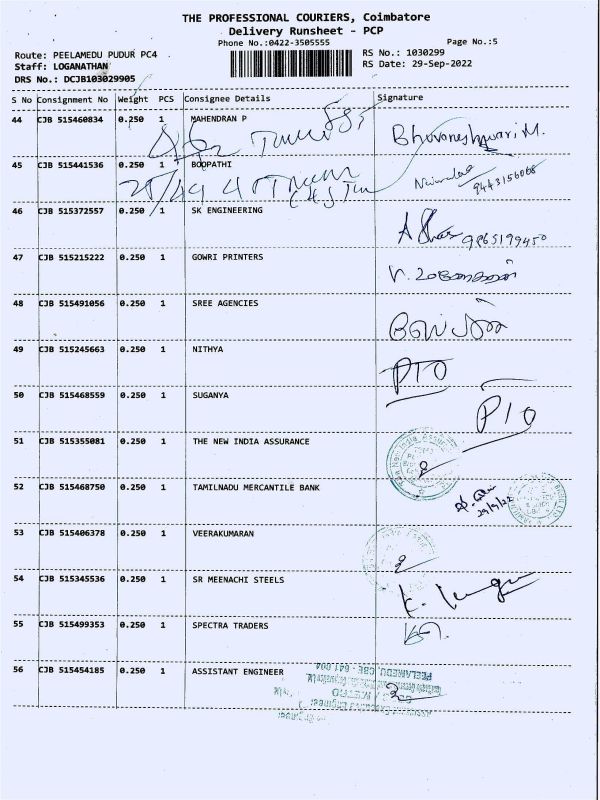 THE PROFESSIONAL COURIERS, Coimbatore
Delivery Runsheet - PCP
Phone No.:0422-3505555
Page No.:5
Route: PEELAMEDU PUDUR PC4
RS No.: 1030299
Staff: LOGANATHAN
RS Date: 29-Sep-2022
DRS No.: DCJB103029905
S No Consignment No Weight PCS Consignee Details Signature
44 CJB 515460834 0.250 1 MAHENDRAN P
Bhuvaneshwari M.
45 CJB 515441536 0.250 1 BOOPATHI
9443156068
46 CJB 515372557 0.250 1 SK ENGINEERING
9865199450
47 CJB 515215222 0.250 1 GOWRI PRINTERS
48 CJB 515491056 0.250 1 SREE AGENCIES
49 CJB 515245663 0.250 1 NITHYA
PTO
50 CJB 515468559 0.250 1 SUGANYA
P10
51 CJB 515355081 0.250 1 THE NEW INDIA ASSURANCE
52 CJB 515468750 0.250 1 TAMILNADU MERCANTILE BANK
29/9/22
53 CJB 515406378 0.250 1 VEERAKUMARAN
54 CJB 515345536 0.250 1 SR MEENACHI STEELS
55 CJB 515499353 0.250 1 SPECTRA TRADERS
56 CJB 515454185 0.250 1 ASSISTANT ENGINEER
PEELAMEDU, CBE - 641 004